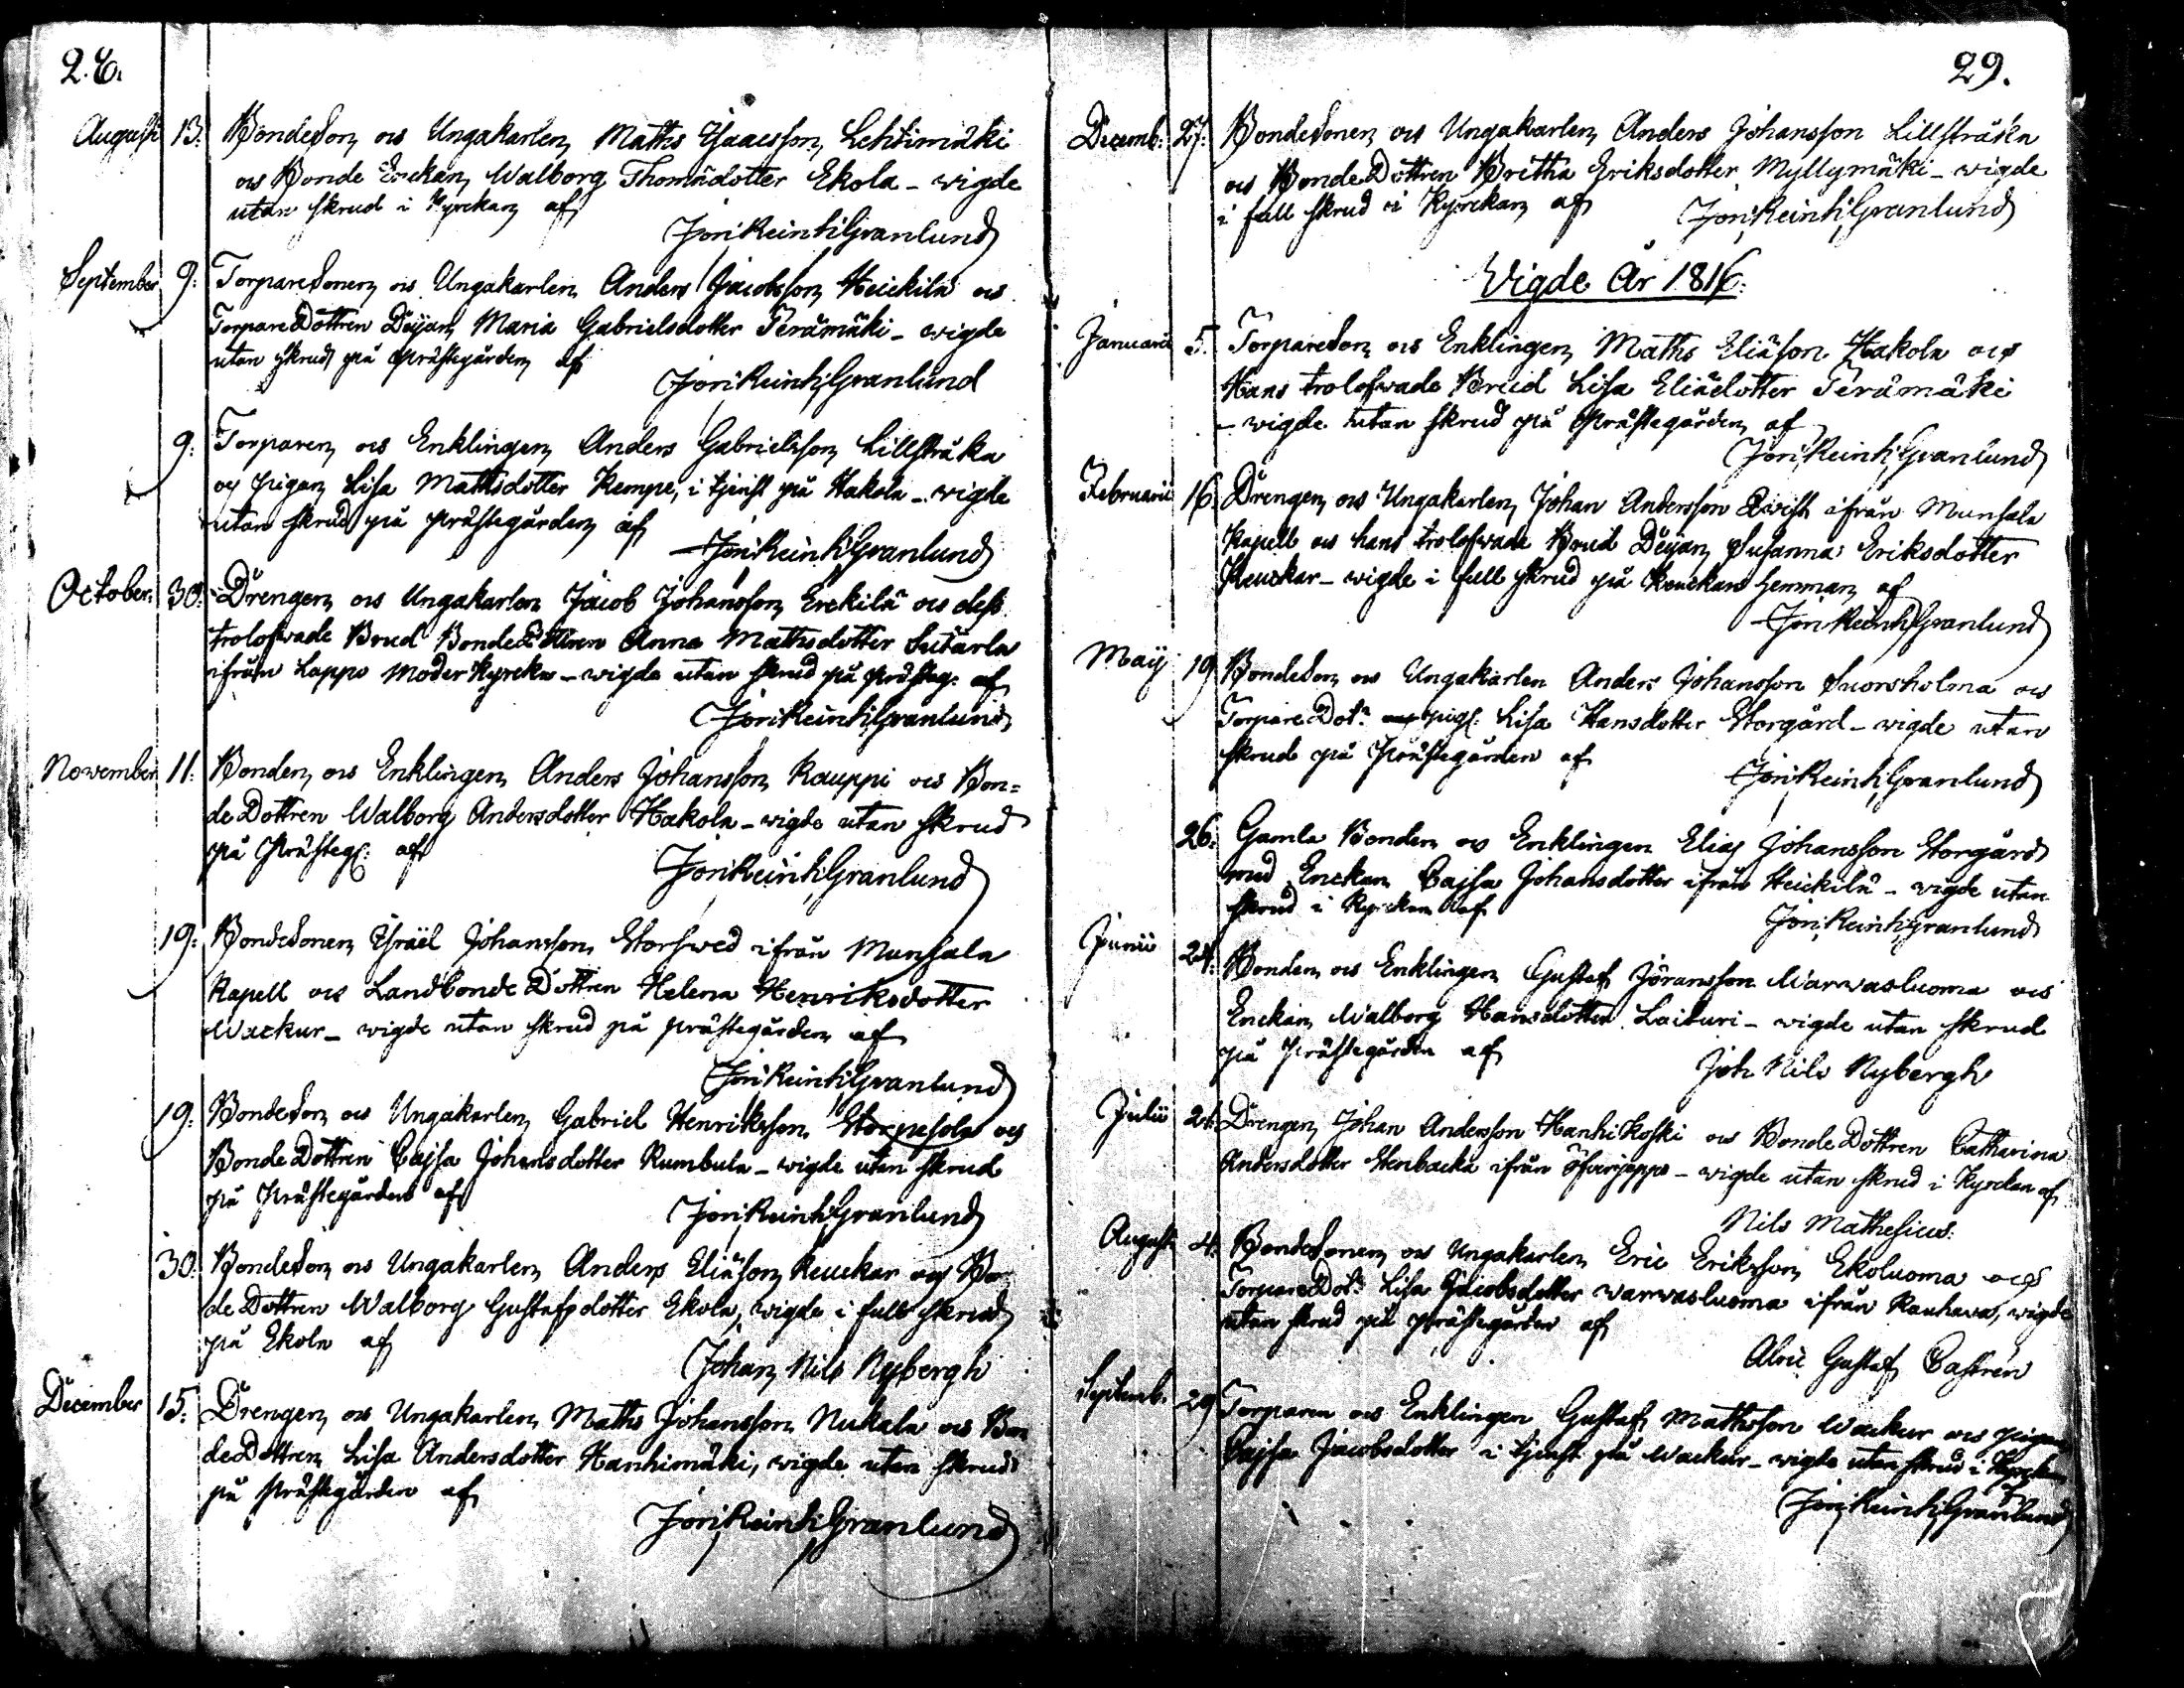 28.
Augusti 13: Bondeson och Ungakarlen Matts Isaacsson Lehtimäki
och Bonde Enckan Walborg Thomädotter Ekola - wigde
utan skrud i Kyrckan af
Jöri Reinh: Granlund
September 9: Torparesonen och Ungakarlen Anders Jacobsson Heickilä och
TorpareDottren Deijan Maria Gabrielsdotter Perämäki - wigde
utan skrud på Prästegården af
Jöri Reinh: Granlund
9: Torparen och Enklingen Anders Gabrielsson Lillstråka
och Pigan Lisa Mattsdotter Kempe, i tjenst på Hakola - wigde
utan skrud på prästegården af
Jöri Reinh: Granlund
October: 30: Drengen och Ungakarlen Jacob Johansson Erckilä och dess
trolofwade Brud BondeDottren Anna Mathsdotter
ifrån Lappo Moder Kyrcka - wigde utan skrud på Prästeg: af
Jöri Reinh: Granlund
November 11: Bonden och Enklingen Anders Johansson Kauppi och Bon=
deDottren Walborg Andersdotter Hakola - wigde utan skrud
på Prästeg: af
Jöri Reinh: Granlund
19: Bondesonen Israël Johansson Storswed ifrån Munsala
Kapell och Landbonde Dottren Helena Henriksdotter
Wackur - wigde utan skrud på prästegården af
Jöri Reinh: Granlund
19: Bondeson och Ungakarlen Gabriel Henriksson Storpesola och
BondeDottren Cajsa Johansdotter Rumbula - wigde utan skrud
på Prästegården af
Jöri Reinh: Granlund
30: Bondeson och Ungakarlen Anders Eliäson Keuckar och Bon
deDottren Walborg Gustafsdotter Ekola, wigde i full skrud
på Ekola af
Johan Nils Nybergh
December 15: Drengen och Ungakarlen Maths Johansson Nukala och Bon
deDottren Lisa Andersdotter Hanhimäki, wigde utan skrud
på Prästegården af
Jöri Reinh: Granlund
29.
Decemb: 27: Bondesonen och Ungakarlen Anders Johansson Lillstråka
och BondeDottren Britha Eriksdotter Myllymäki - wigde
i full skrud i Kyrckan af Jöri Reinh: Granlund
Wigde År 1816.
Januarii 5. Torpareson och Enklingen Maths Eliäson Hakola och
Hans trolofwade Brud Lisa Eliädotter Perämäki
- wigde utan skrud på Prästegården af
Jöri Reinh: Granlund
Februarii 16. Drengen och Ungakarlen Johan Andersson Qwist ifrån Munsala
Kapell och hans trolofwade Brud Deijan Susanna Eriksdotter
Keuckar - wigde i full skrud på Keuckars hemman af
Jöri Reinh: Granlund
Maij 19 Bondeson och Ungakarlen Anders Johansson Snorsholma och
TorpareDot: pig: Lisa Hansdotter Storgård - wigde utan
skrud på Prästegården af
Jöri Reinh: Granlund
26: Gamla Bonden och Enklingen Elias Johansson Storgård
med Enckan Cajsa Johansdotter ifrån Heickilä - wigde utan
skrud i Kyrckan af
Jöri Reinh: Granlund
Junii 24: Bonden och Enklingen Gustaf Jöransson Warwasluoma och
Enckan Walborg Hansdotter Laituri - wigde utan skrud
på Prästegården af
Joh Nils Nybergh
Julii 24: Drengen Johan Andersson Hanhikoski och BondeDottren Catharina
Andersdotter Stenbacka ifrån Öfverjeppo - wigde utan skrud i Kyrckan af
Nils Mathesius.
Augusti 4: Bondesonen och Ungakarlen Eric Eriksson Ekoluoma och
TorpareDot: Lisa Jacobsdotter Warwasluoma ifrån Kauhava, wigde
utan skrud på Prästegården af
Gustaf Castrén
Septemb. 29 Torparen och Enklingen Gustaf Mathsson Wackur och pigan
Cajsa Jacobsdotter i tjenst på Wackur - wigde utan skrud i Kyrckan
af
Jöri Reinh: Granlund